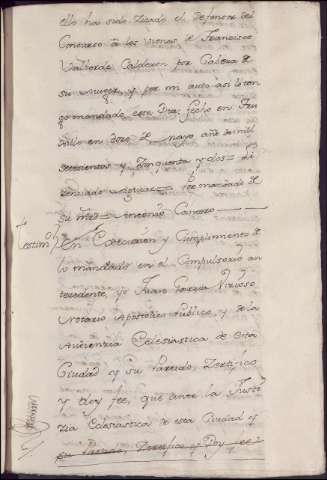 ello ha sido Zitado el defensor del
Concurso a los vienes de Francisco
Valverde Calderon por Caveza de
su muger, y por mi auto assi lo ten
go mandado, este Dia; fecho en Tru
xillo en doze de mayo año de mill
settecientos y Zinquenta y dos = Li
zenziado Aguilar = Por mandado de
su mrd = Antonio Canzro
Testimº En Execuzion y Cumplimiento de
lo mandado en el Compulsorio an
tezedente, yo Juan Garzia Virtuoso,
Notario Apostolico Publico, y de la
Audienzia Eclesiastica de esta
Ciudad y su Partido, Zertifico
y Doy fee, que ante la Justi
zia Eclesiastica de esta Ciudad y
su Partido, Zertifico y Doy fee